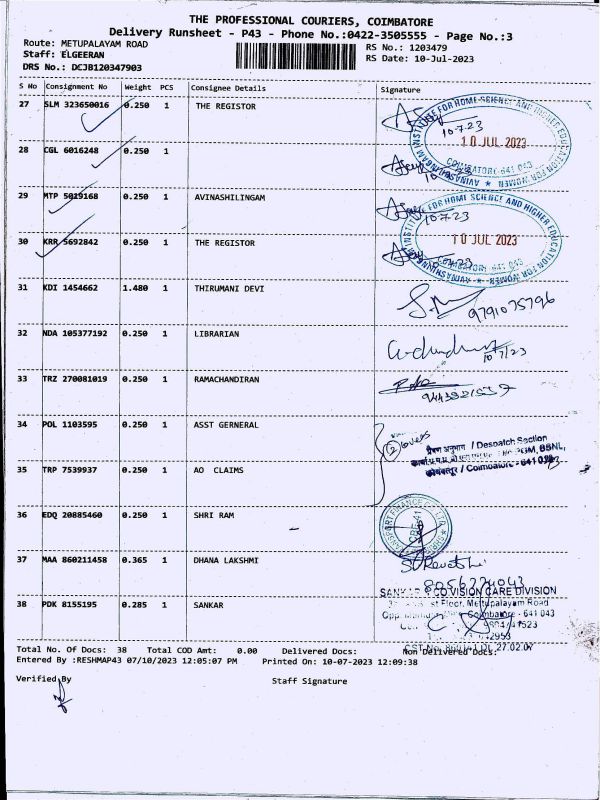 THE PROFESSIONAL COURIERS, COIMBATORE
Delivery Runsheet - P43 - Phone No.:0422-3505555 - Page No.:3
Route: METUPALAYAM ROAD RS No.: 1203479
Staff: ELGEERAN RS Date: 10-Jul-2023
DRS No.: DCJB120347903
S No Consignment No Weight PCS Consignee Details Signature
27 SLM 323650016 0.250 1 THE REGISTOR
10-7-23
10 JUL 2023
28 CGL 6016248 0.250 1
29 MTP 5029168 0.250 1 AVINASHILINGAM
10-7-23
30 KRR 5692842 0.250 1 THE REGISTOR
10 JUL 2023
31 KDI 1454662 1.480 1 THIRUMANI DEVI
9791075796
32 NDA 105377192 0.250 1 LIBRARIAN
10/7/23
33 TRZ 270081019 0.250 1 RAMACHANDIRAN
34 POL 1103595 0.250 1 ASST GERNERAL
2 covers
/ Despatch Section
BBNL,
35 TRP 7539937 0.250 1 AO CLAIMS
/ Coimbatore - 641
36 EDQ 20885460 0.250 1 SHRI RAM
37 MAA 860211458 0.365 1 DHANA LAKSHMI
8056274043
VISION CARE DIVISION
38 PDK 8155195 0.285 1 SANKAR
st Floor, Mettupalayam Road
Coimbatore - 641 043
Total No. Of Docs: 38 Total COD Amt: 0.00 Delivered Docs: Non Delivered Docs:
Entered By :RESHMAP43 07/10/2023 12:05:07 PM Printed On: 10-07-2023 12:09:38
Verified By Staff Signature